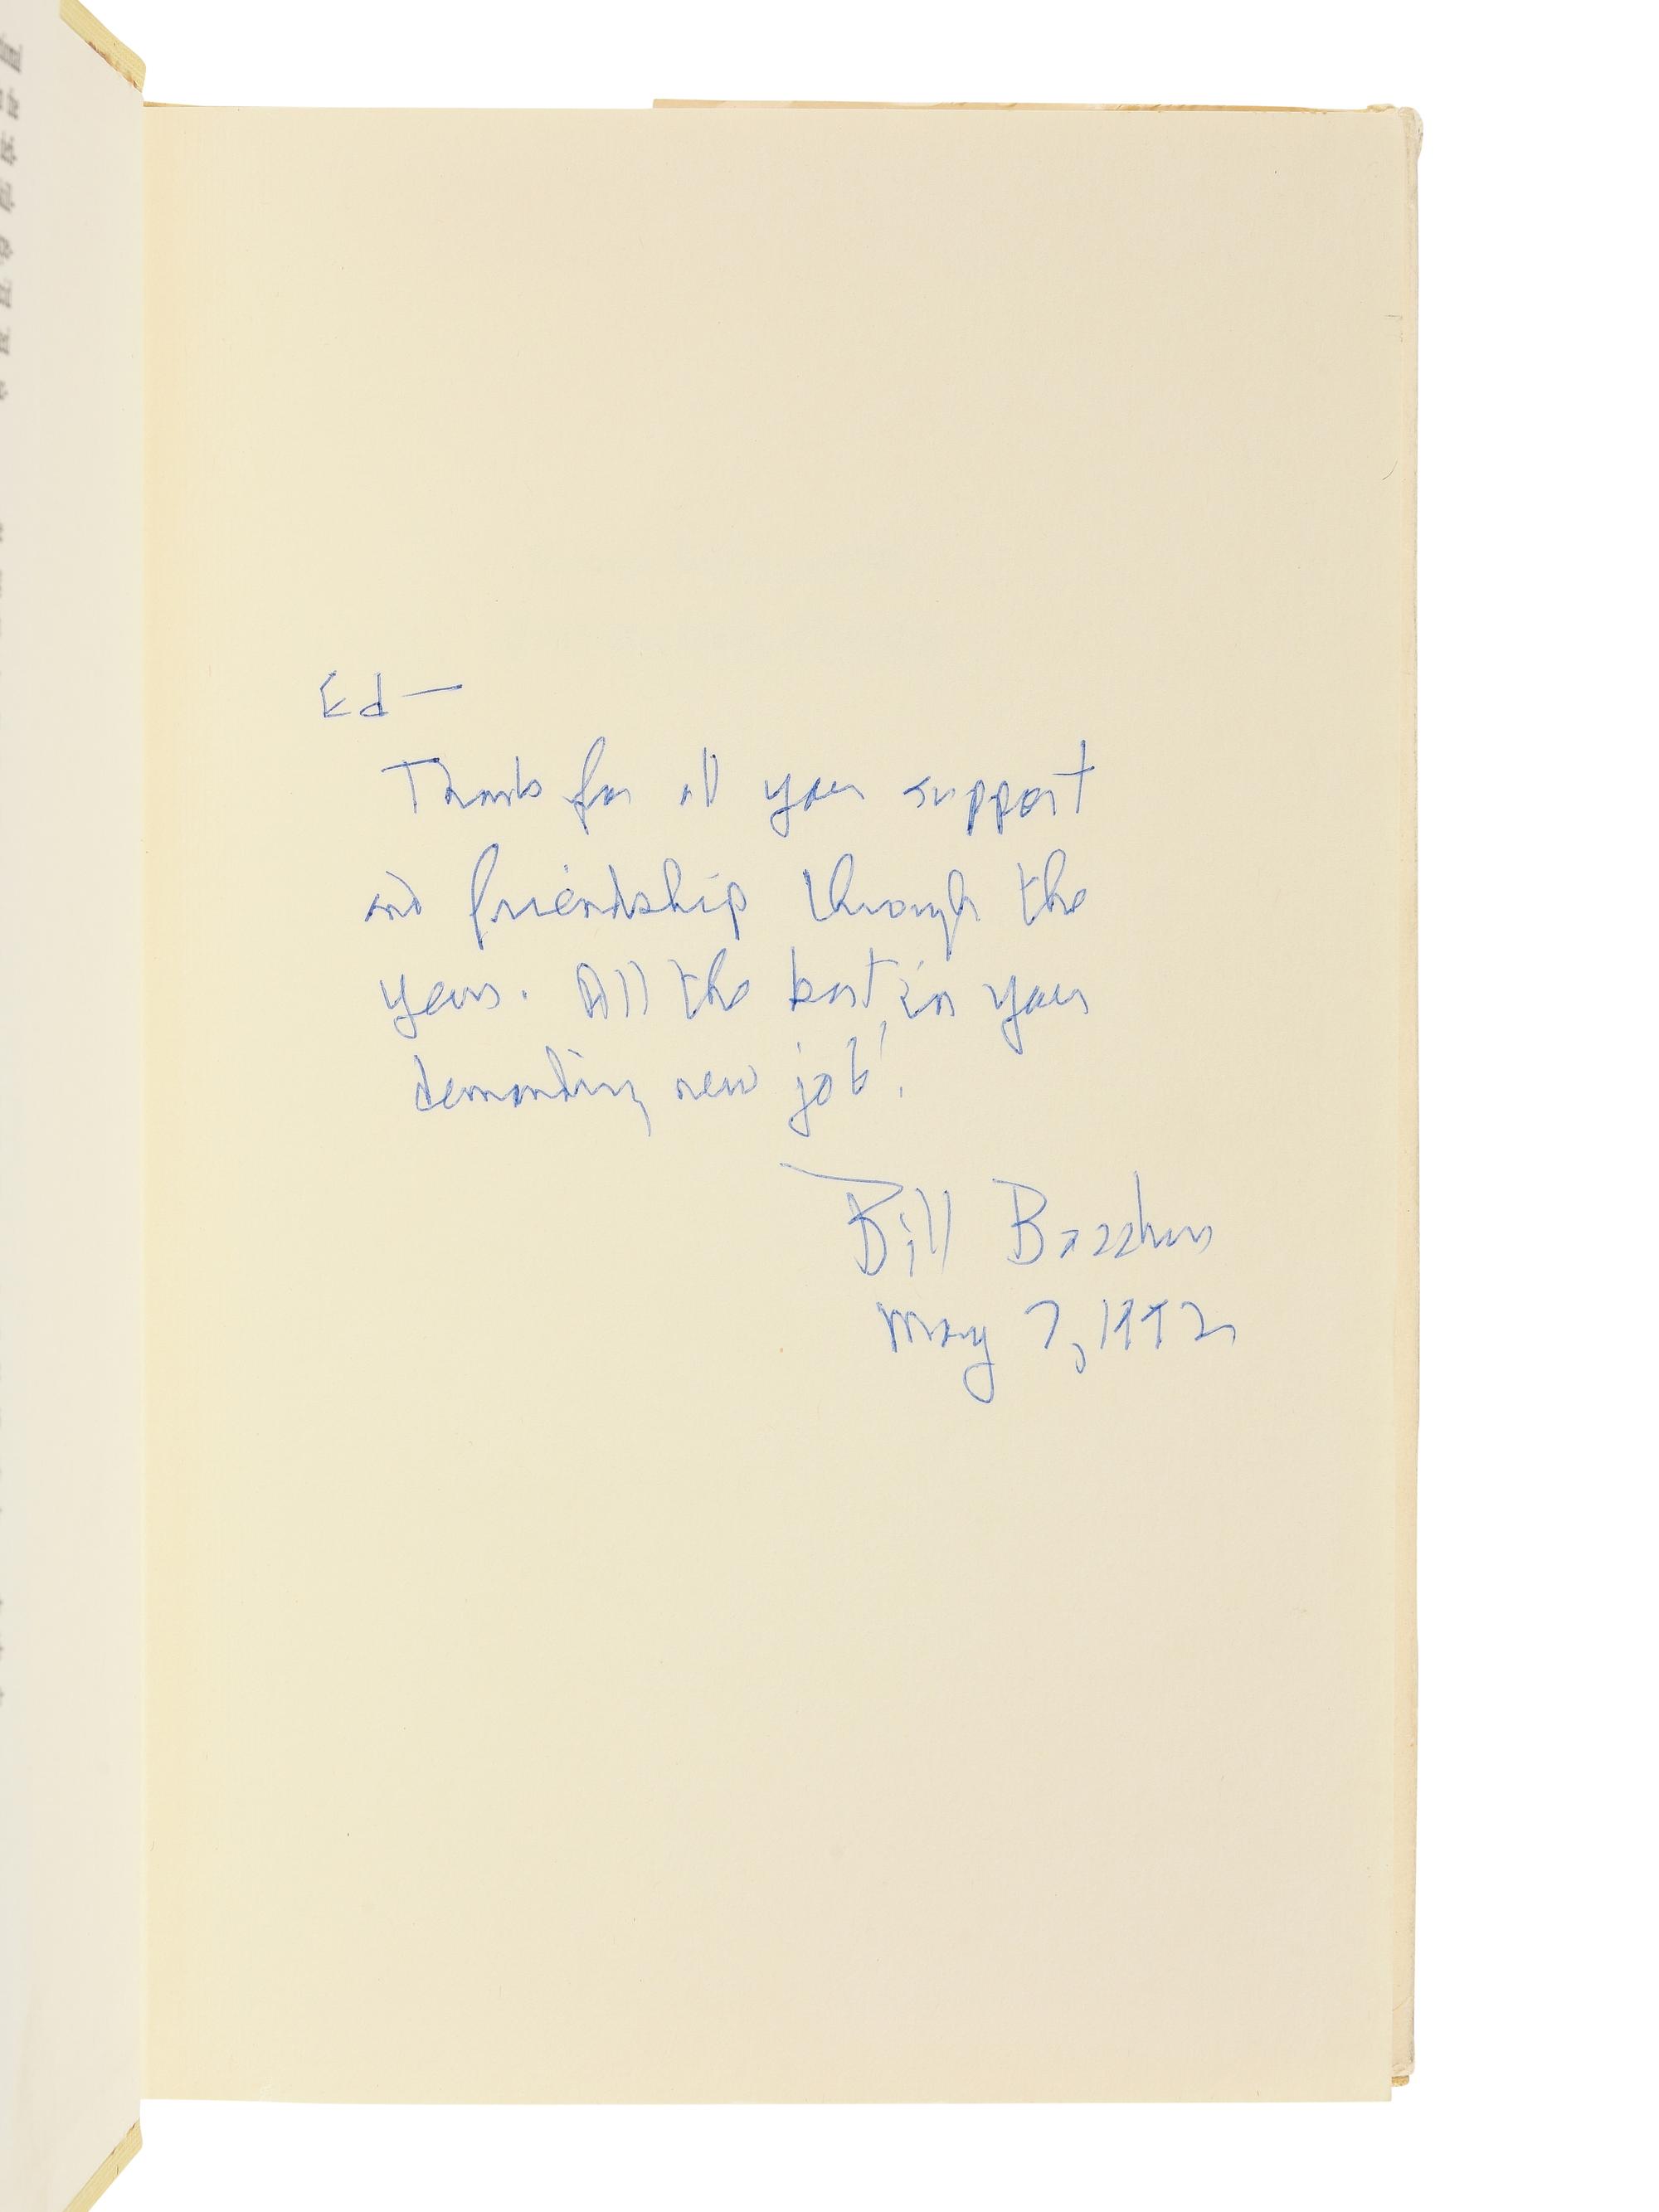 Ed—
Thanks for all your support
and friendship through the
years. All the best, in your
demanding new job!
Bill
May 7, 1992